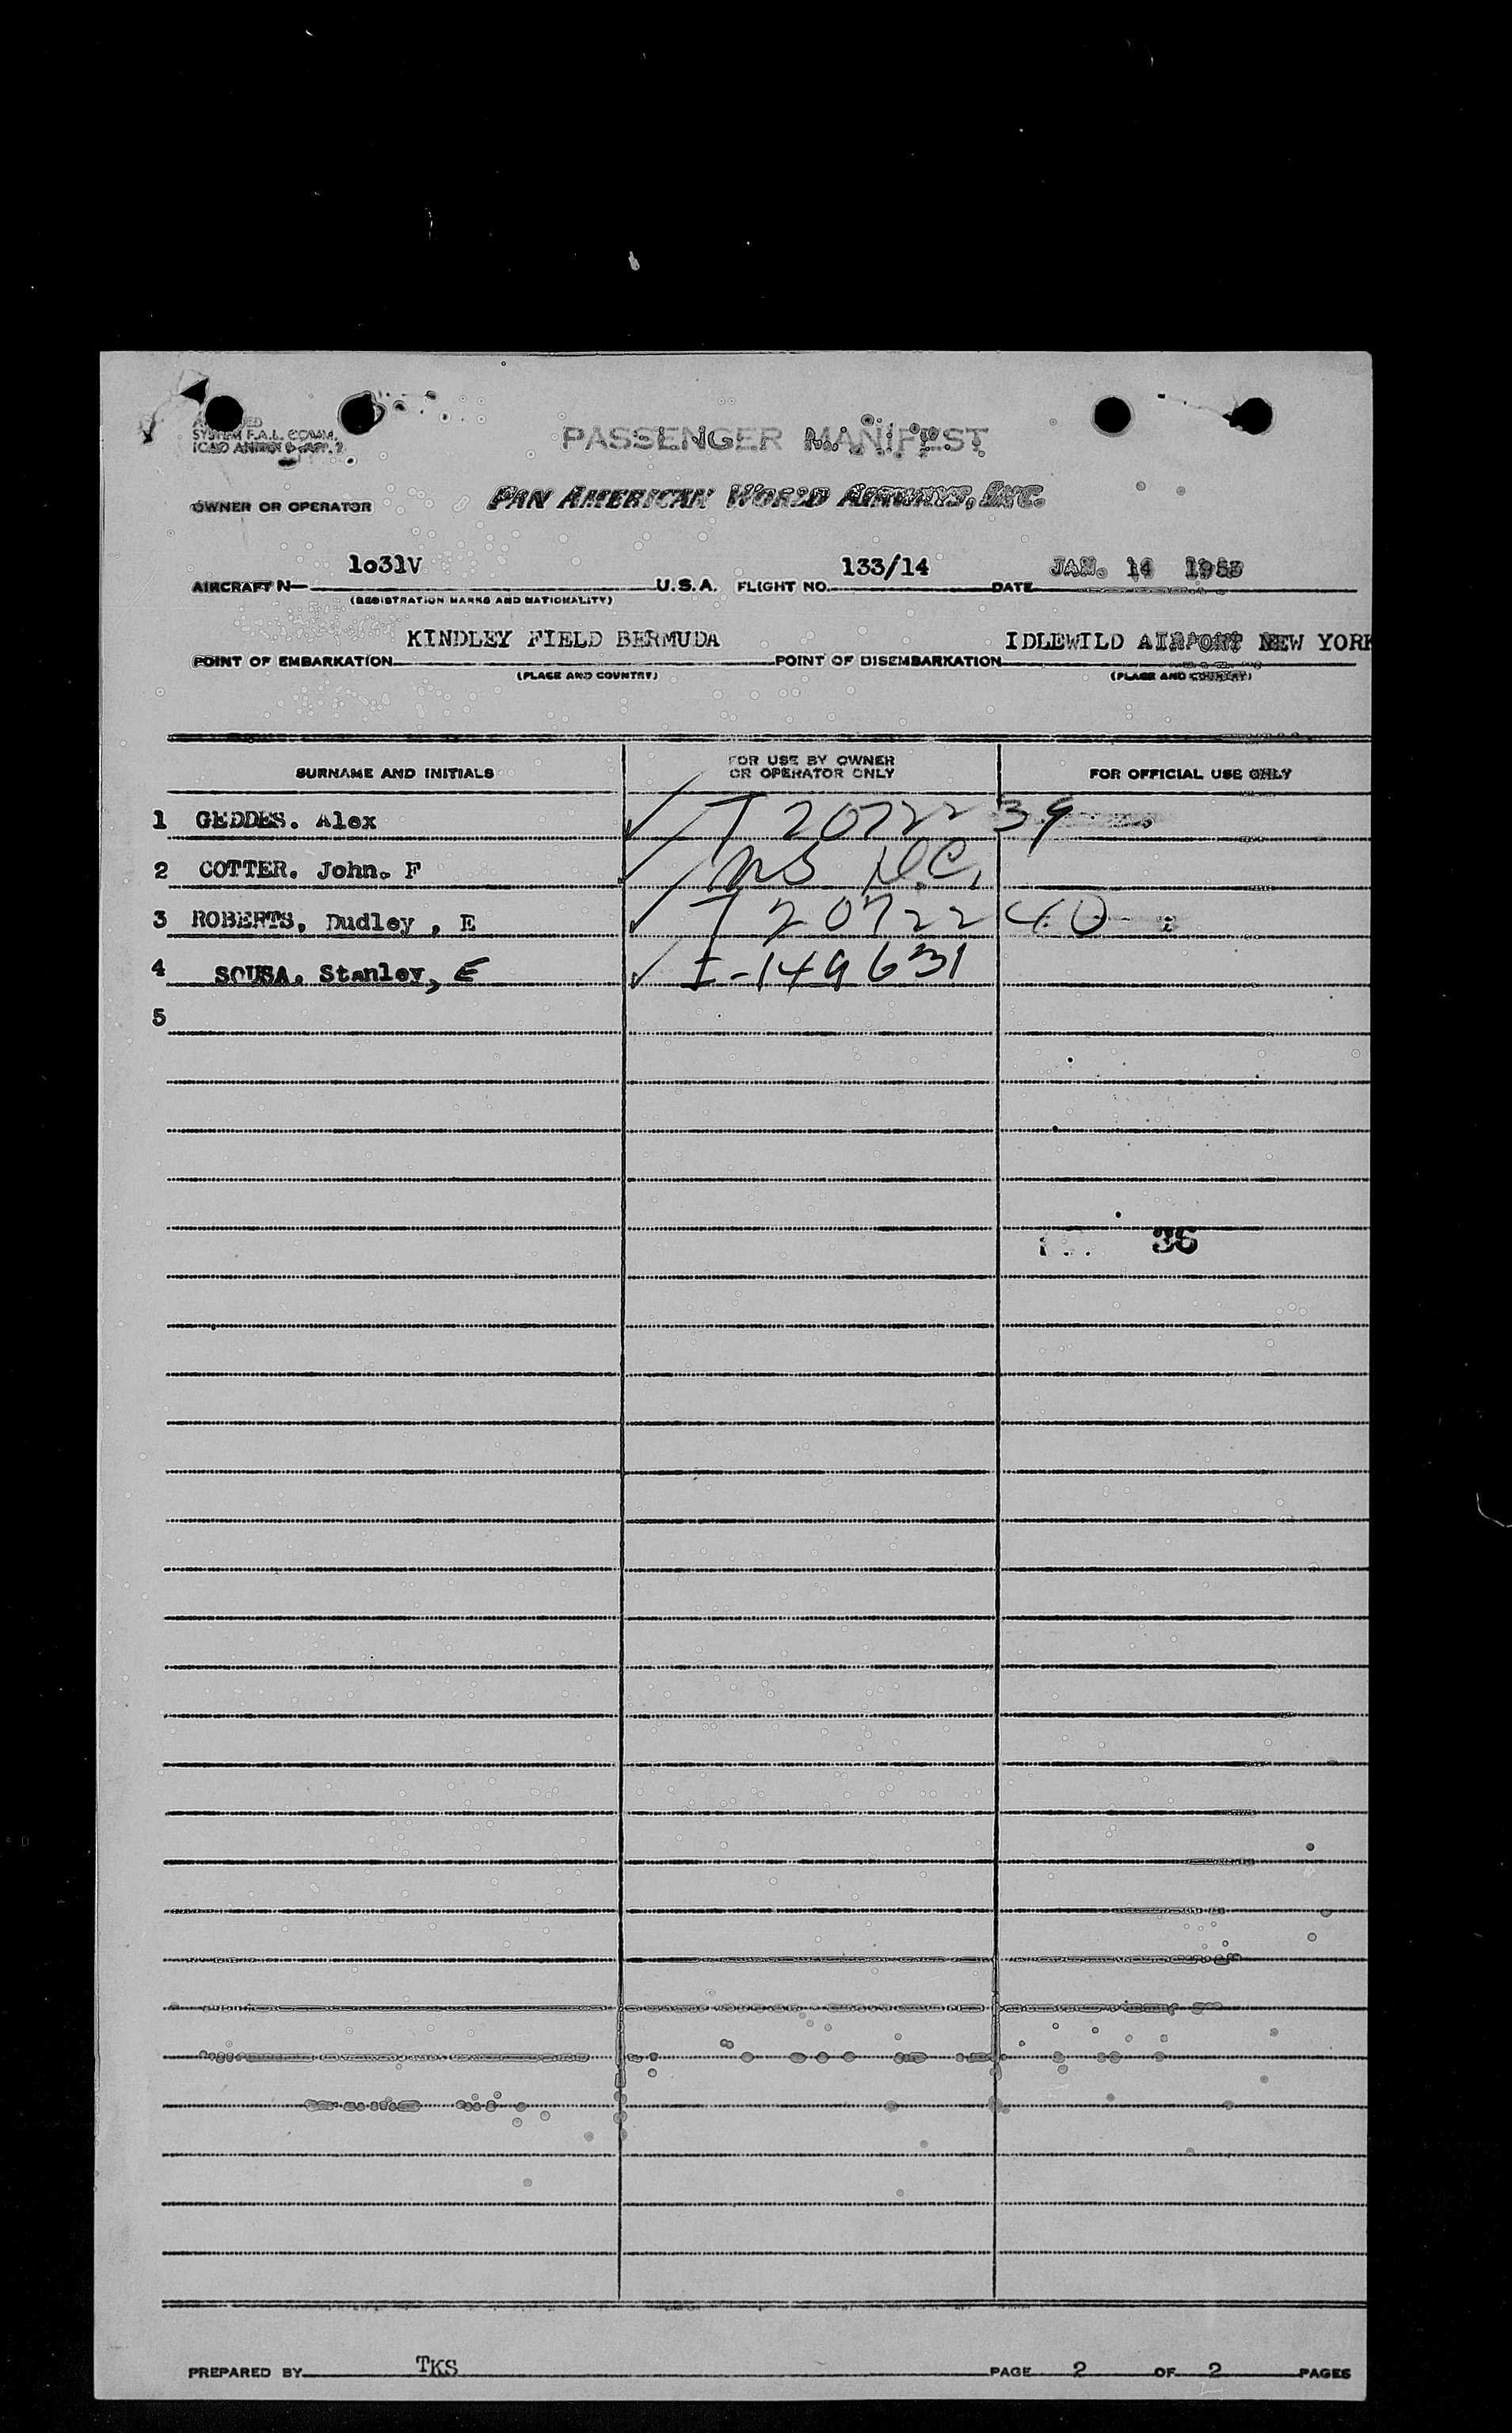 SYSTEM F.A.L. COMM.
PASSENGER MANIFEST
OWNER OR OPERATOR PAN AMERICAN WORLD AIRWAYS, INC.
AIRCRAFT N 1o31V U.S.A. FLIGHT NO. 133/14 DATE JAN. 14 1953
(REGISTRATION MARKS AND NATIONALITY)
POINT OF EMBARKATION KINDLEY FIELD BERMUDA POINT OF DISEMBARKATION IDLEWILD AIRPORT NEW YORK
(PLACE AND COUNTRY) (PLACE AND COUNTRY)
SURNAME AND INITIALS FOR USE BY OWNER OR OPERATOR ONLY FOR OFFICIAL USE ONLY
1 GEDDES. Alex T 20722 39
2 COTTER. John. F
3 ROBERTS, Dudley , E T 20722 40
4 SOUSA. Stanley, E I-149631
5
36
PREPARED BY TKS PAGE 2 OF 2 PAGES